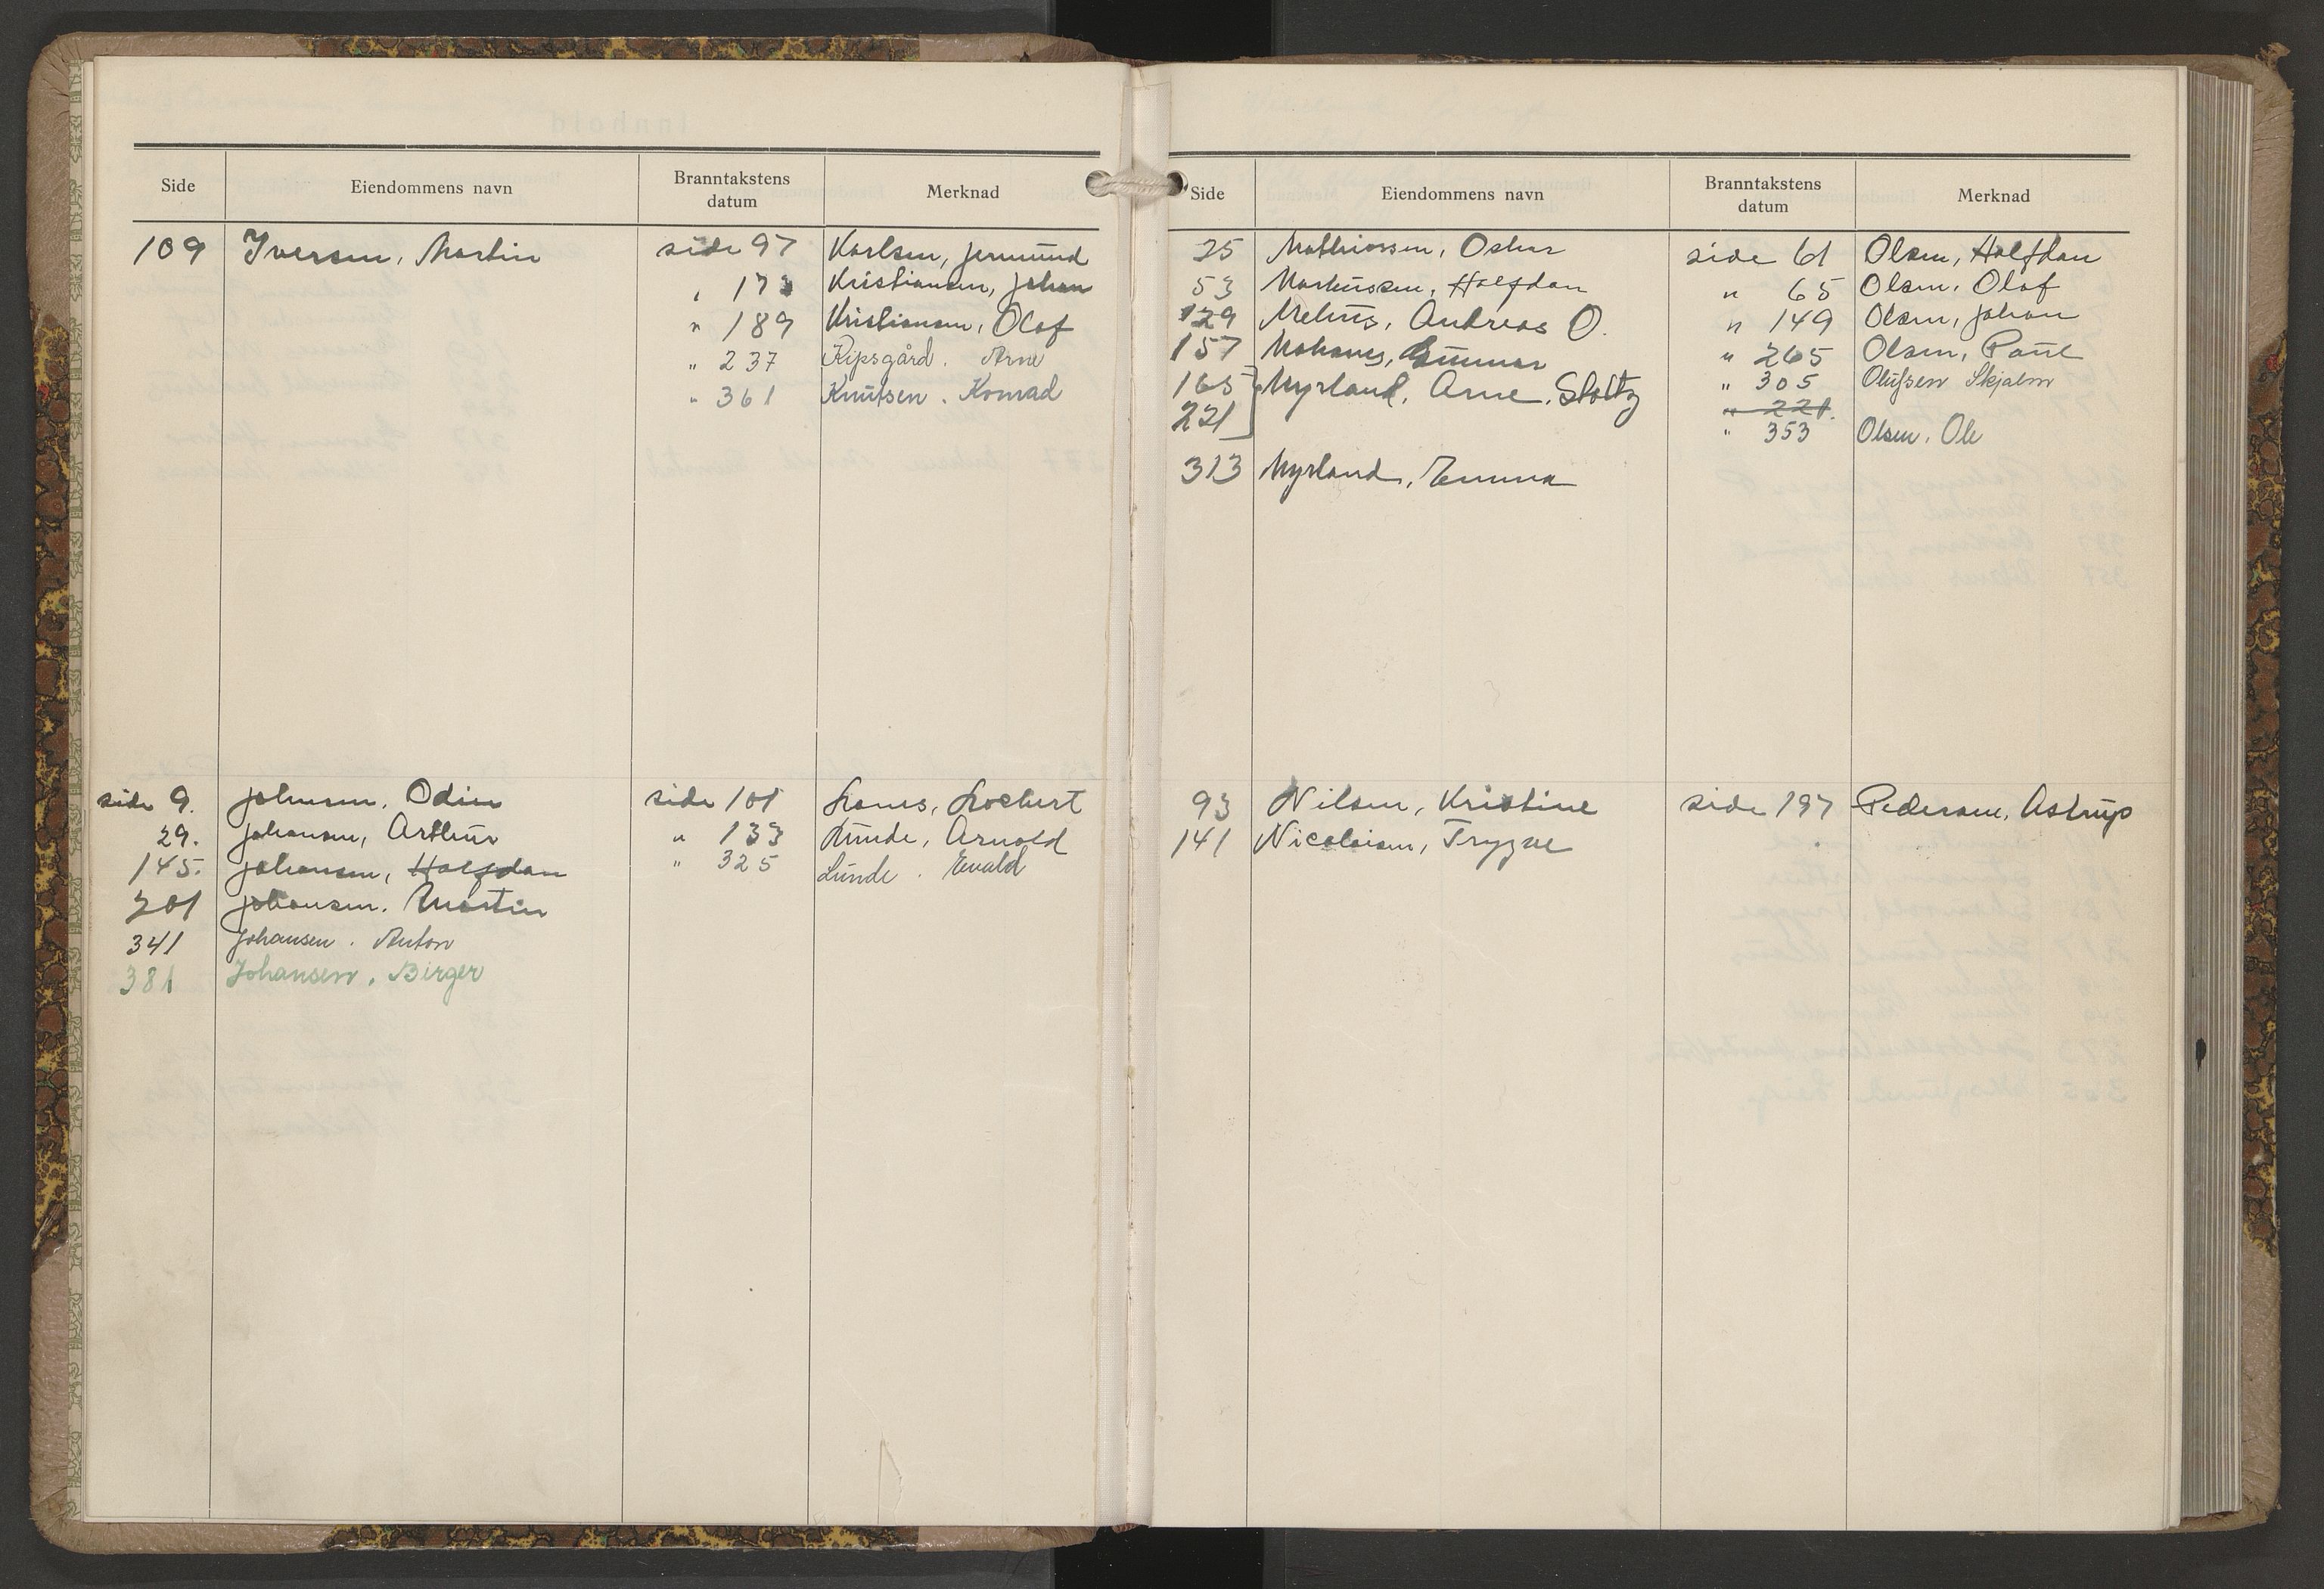 Side Eiendommens navn Branntakstens datum Merknad
109 Iversen, Martin
side 97 Karlsen, Jermund
" 173 Kristiansen, Johan
" 189 Kristiansen, Olaf
" 237 Kipsgård. Arne
" 361 Knutsen. Konrad
side 9. Johnsen. Odin
29. Johansen, Arthur
145. Johansen, Halfdan
201 Johansen. Martin
341 Johansen. Anton
381 Johansen. Birger
side 101
" 133 Lunde, Arnold
" 325 Lunde. Evald
Side Eiendommens navn Branntakstens datum Merknad
25 Mathiassen, Oskar
53 Markussen, Halfdan
129 Melhus, Andreas O.
157 Gunnar
165 Myrland, Arne. Stoltz
221
313 Myrland, Emma
side 61 Olsen, Halfdan
" 65 Olsen, Olaf
" 149 Olsen, Johan
" 265 Olsen, Paul
" 305 Olufsen Skjalm
" 221.
" 353 Olsen. Ole
93 Nilsen, Kristine
141 Nicolaisen, Trygve
side 197 Pedersen, Astrup